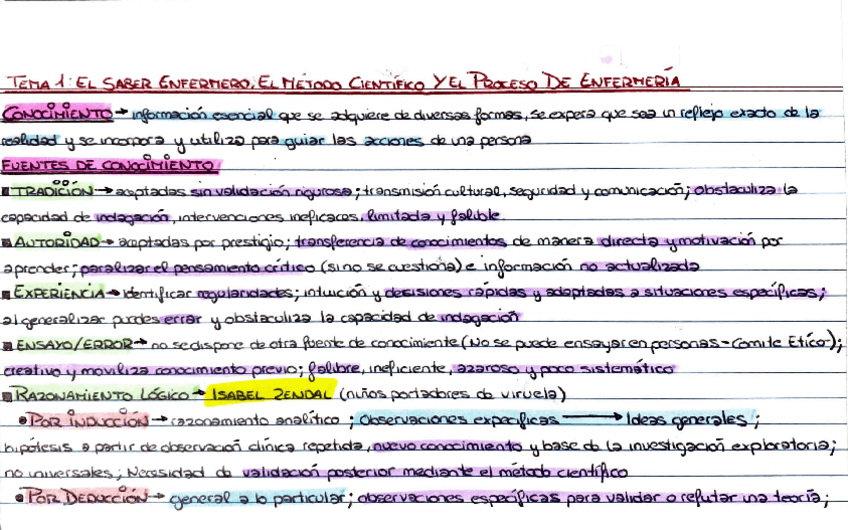 TEMA 1: EL SABER ENFERMERO, EL MÉTODO CIENTÍFICO Y EL PROCESO DE ENFERMERÍA
CONOCIMIENTO → información esencial que se adquiere de diversas formas, se espera que sea un reflejo exacto de la
realidad y se incorpora y utiliza para guiar las acciones de una persona
FUENTES DE CONOCIMIENTO
■ TRADICIÓN → aceptadas sin validación rigurosa; transmisión cultural, seguridad y comunicación; obstaculiza la
capacidad de indagación, intervenciones ineficaces, limitada y falible
■ AUTORIDAD → aceptadas por prestigio; transferencia de conocimientos de manera directa y motivación por
aprender; paralizar el pensamiento crítico (si no se cuestiona) e información no actualizada
■ EXPERIENCIA → identificar regularidades; intuición y desisiones rápidas y adaptadas a situaciones específicas;
al generalizar puedes errar y obstaculiza la capacidad de indagación
■ ENSAYO/ERROR → no se dispone de otra fuente de conocimiento (No se puede ensayar en personas - Comite Etico);
creativo y moviliza conocimiento previo; falibre, ineficiente, azaroso y poco sistemático
■ RAZONAMIENTO LÓGICO → ISABEL ZENDAL (niños portadores de viruela)
• POR INDUCCIÓN → razonamiento analítico; observaciones especificas → Ideas generales;
hipótesis a partir de observación clínica repetida, nuevo conocimiento y base de la investigación exploratoria;
no universales; Necesidad de validación posterior mediante el método científico
• POR DEDUCCIÓN → general a lo particular; observaciones específicas para validar o refutar una teoría;